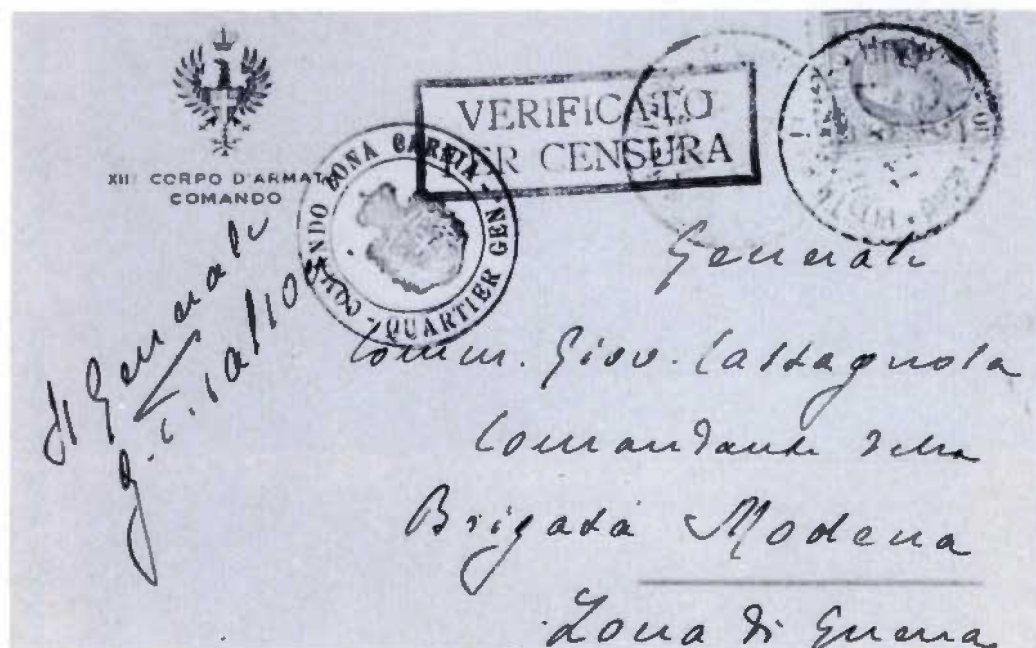 XII CORPO D'ARMAT
COMANDO
VERIFICATO
PER CENSURA
COMANDO ZONA CARNIA - QUARTIER GEN
Il Generale
Generale
Comm. Giov. Castagnola
Comandante della
Brigata Modena
Zona di Guerra